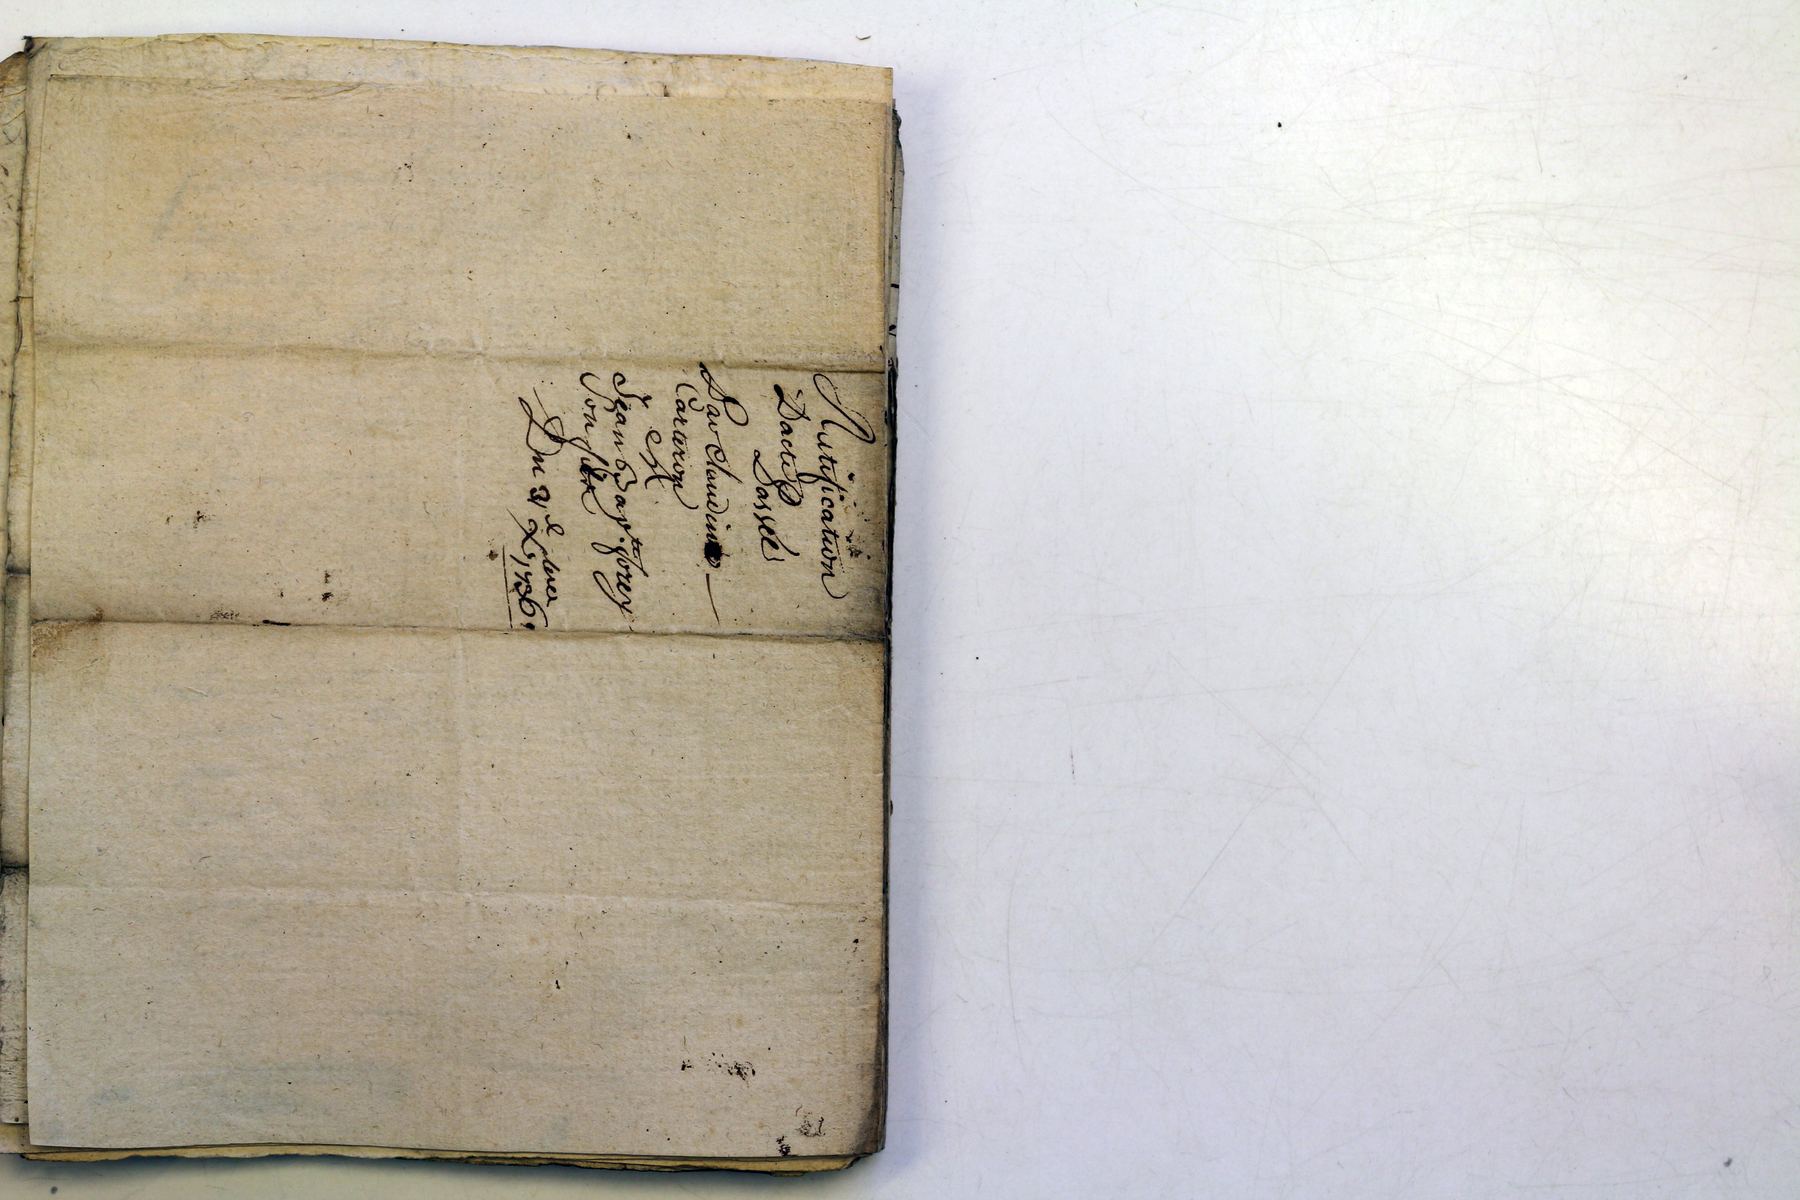 Ratification
Dactes
Passés
Par Claudine
Carteron
Et
Jean Bap.te Forey
Son fils
Du 31e
1786